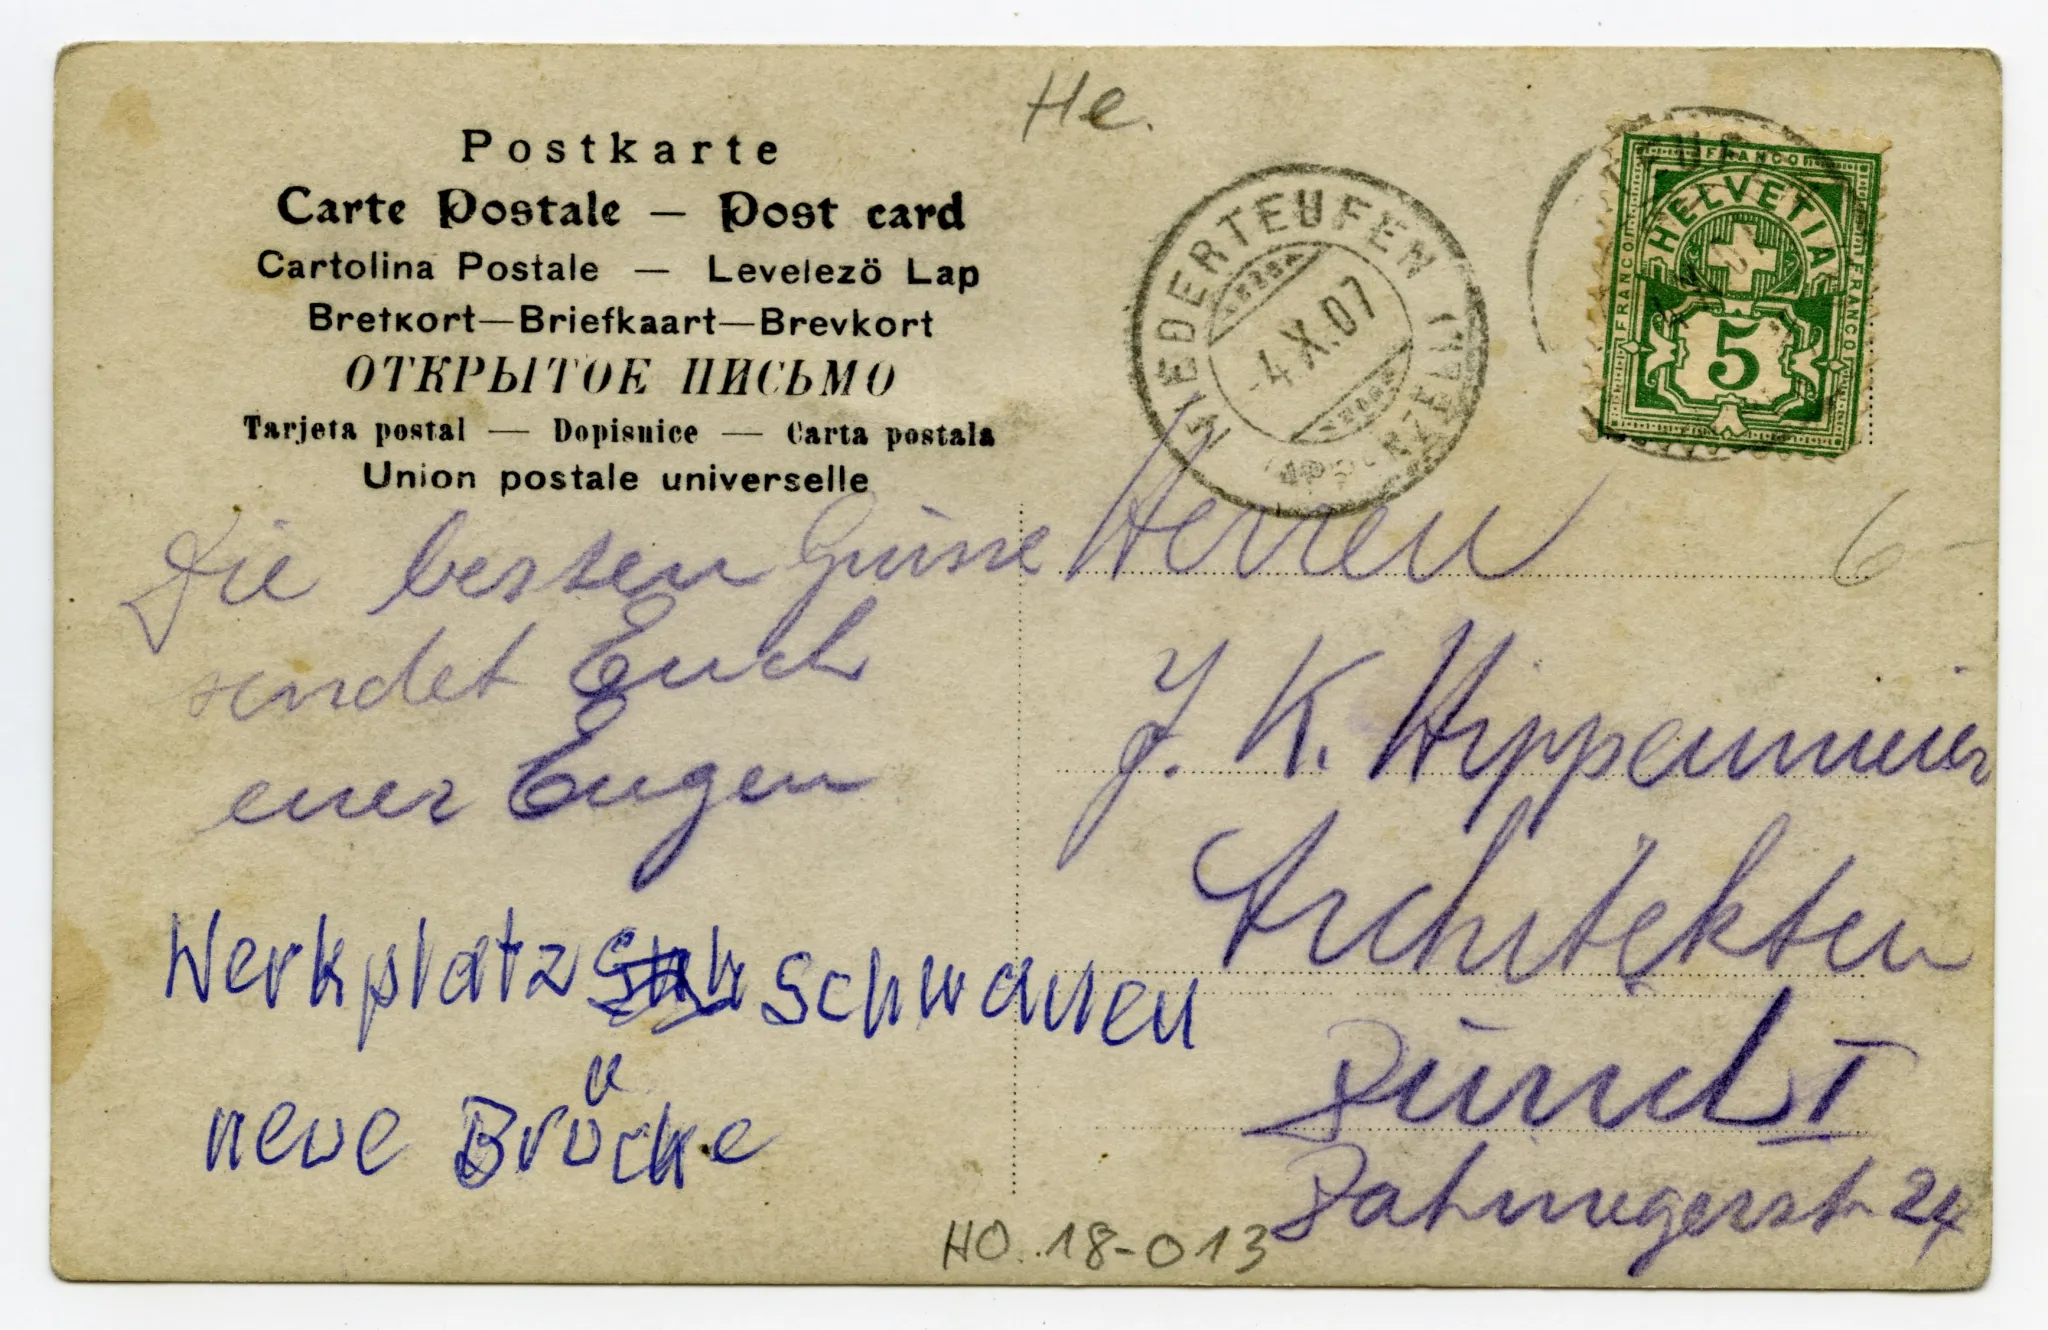 He.
Postkarte
Carte Postale — Post card
Cartolina Postale — Levelezö Lap
Bretkort—Briefkaart—Brevkort
ОТКРЫТОЕ ПИСЬМО
Tarjeta postal — Dopisnice — Carta postala
Union postale universelle
NIEDERTEUFEN (APPENZELL)
-4.X.07
FRANCO
HELVETIA
FRANCO
FRANCO
5
6-
Die besten Grüsse
sendet Euch
euer Eugen
Werkplatz Schwanen
neue Brücke
Herren
J. K. Hippenmeier
Architekten
Zürich I
24
HO.18-013